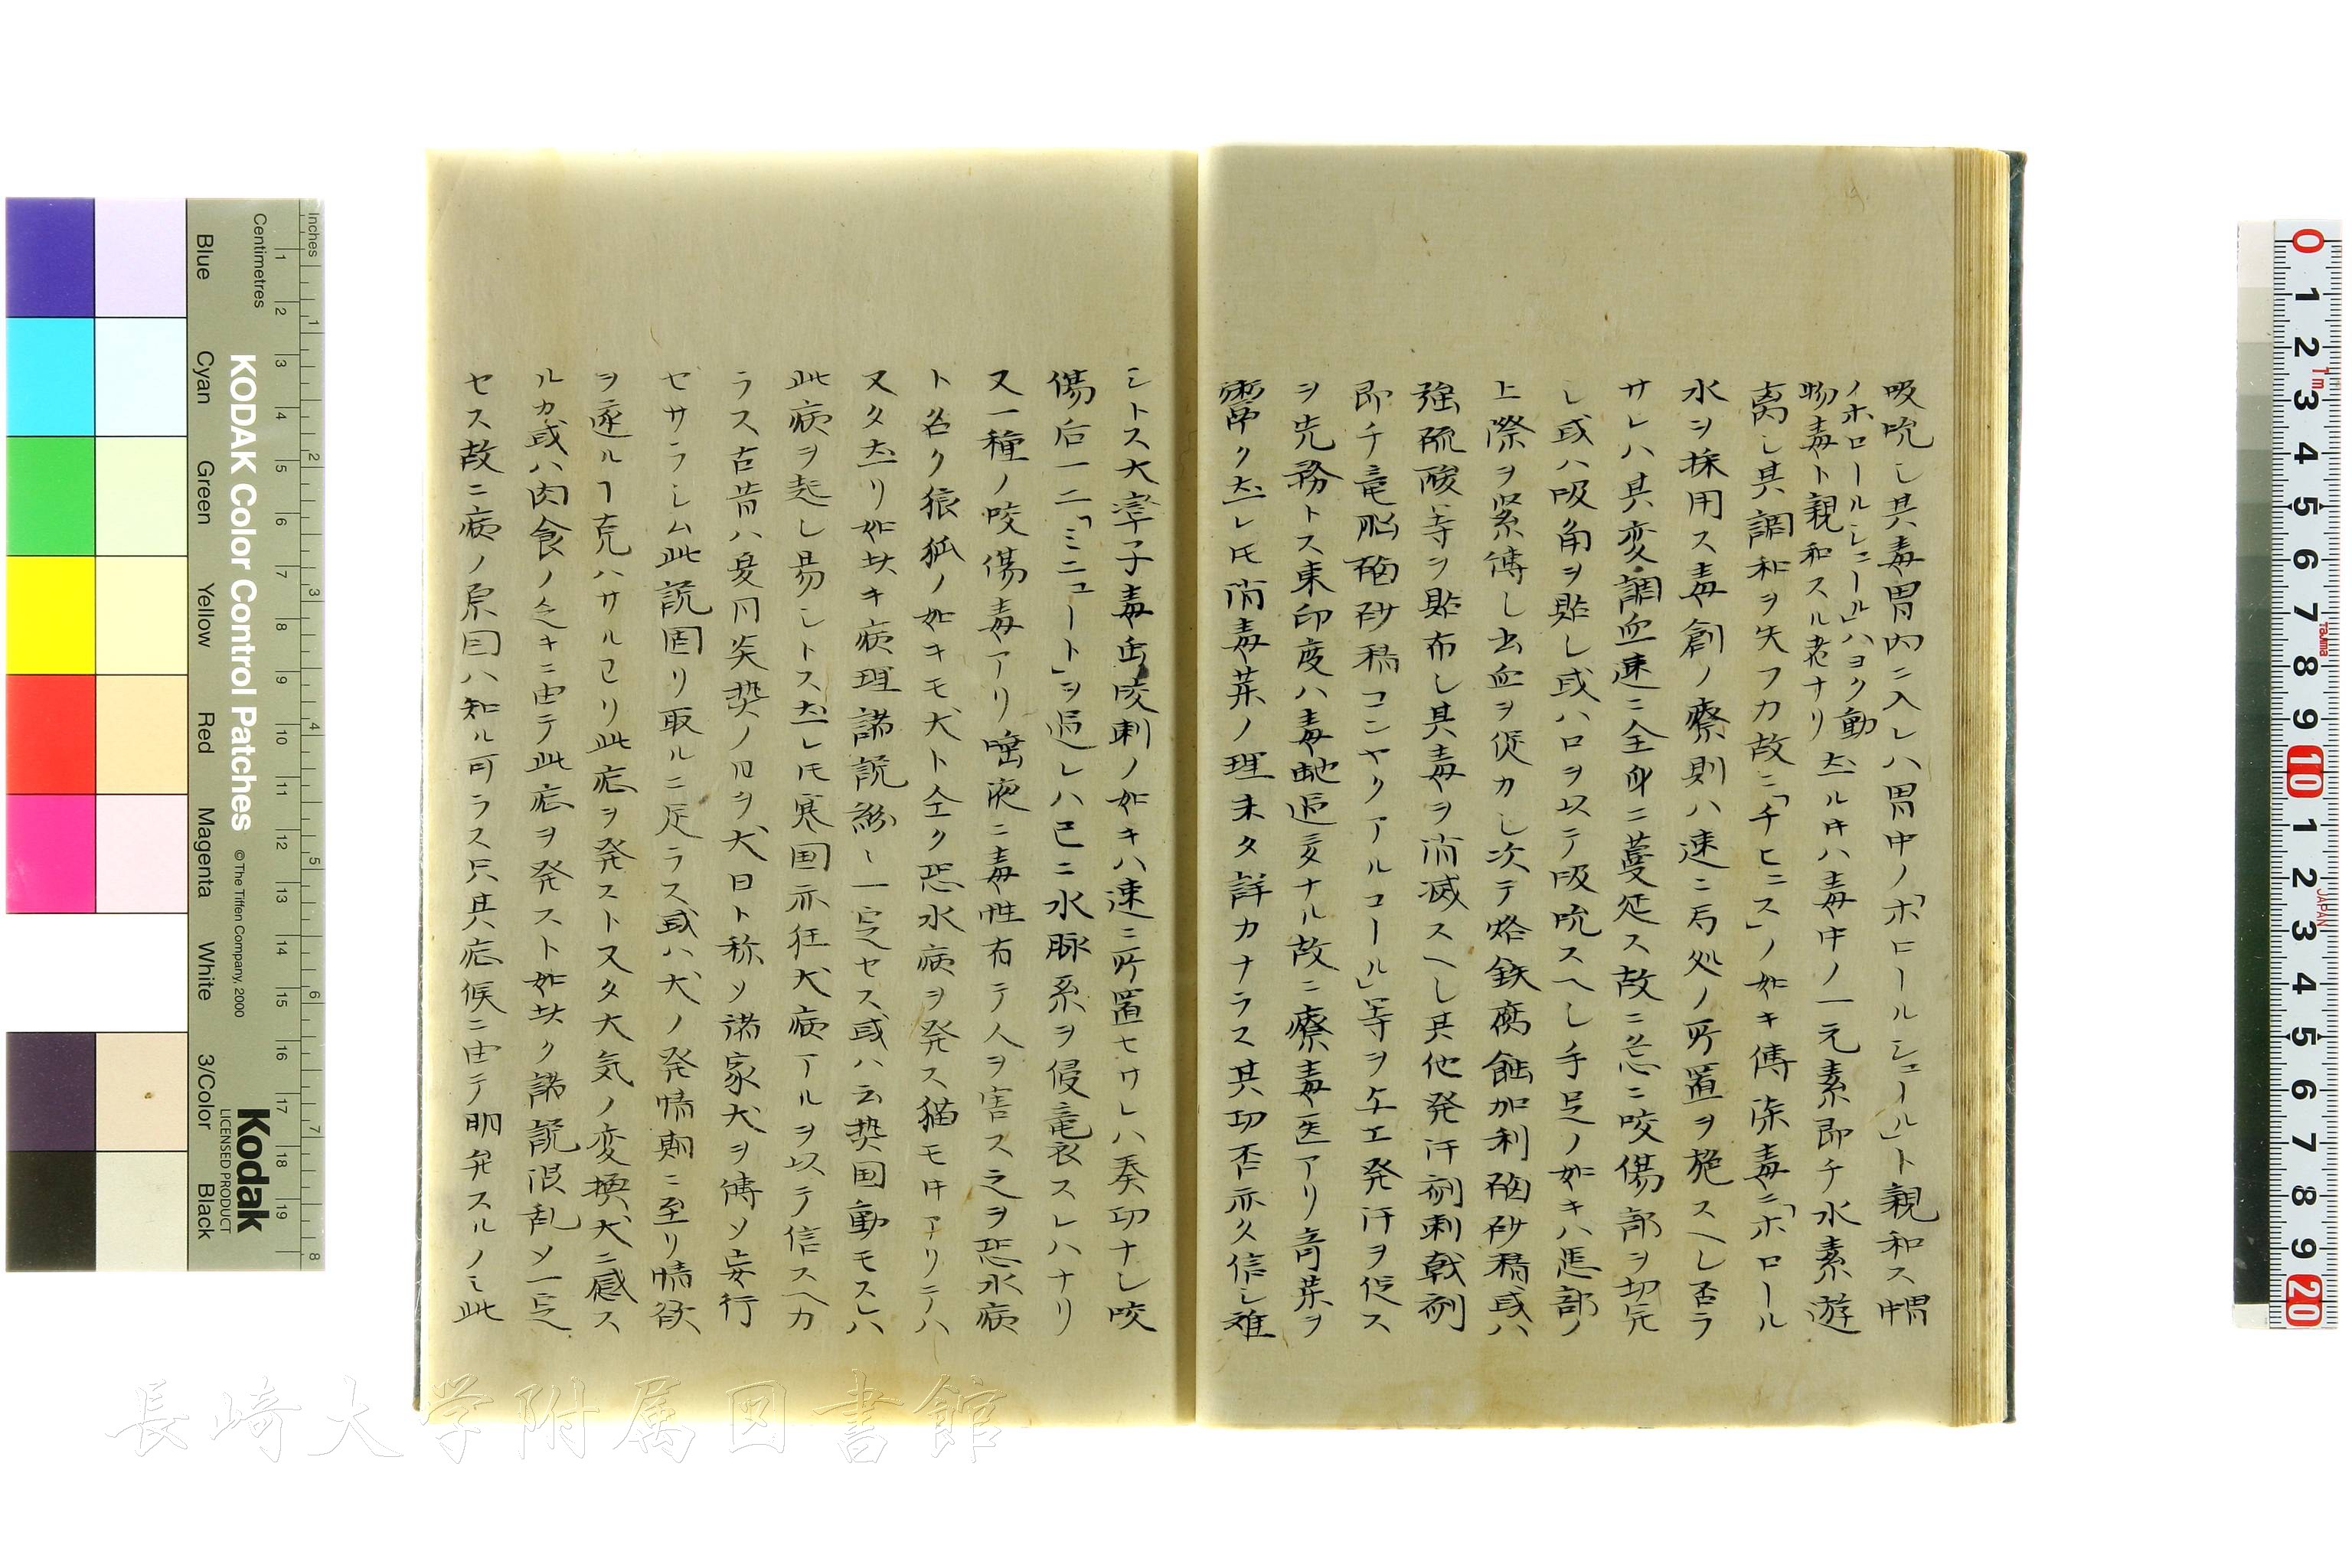 吸吮し其毒胃内ニ入レハ胃中ノ「ホロールシュール」ト親和ス胃中
ノホロールシュール」ハヨク動
物毒ト親和スル者ナリ 然ルキハ毒中ノ一元素即チ水素遊
离し其調和ヲ失フカ故ニ「チヒニス」ノ如キ傳染毒ニ「ホロール
水ヲ採用ス毒創ノ療則ハ速ニ局処ノ所置ヲ施スヘし否ラ
サレハ其変調血速ニ全身ニ蔓延ス故ニ忽ニ咬傷部ヲ切除
し或ハ吸角ヲ貼し或ハ口ヲ以テ吸吮スヘし手足ノ如キハ患部ノ
上際ヲ緊縛し出血ヲ促カし次テ烙鉄腐蝕加利硇砂精或ハ
強硫酸等ヲ貼布し其毒ヲ消滅スヘし其他発汗剤刺戟剤
即チ竜脳硇砂精コンヤクアルコール」等ヲ与エ発汗ヲ促ス
ヲ先務トス東印度ハ毒蛇過多ナル故ニ療毒医アリ奇薬ヲ
鬻ク然レ𪜈消毒薬ノ理未タ詳カナラス其功否亦久信し難
シトス大凡子毒蛇咬刺ノ如キハ速ニ所置セサレハ奏功ナし咬
傷后一二「ミニュート」ヲ過レハ已ニ水脉系ヲ侵襲スレハナリ
又一種ノ咬傷毒アリ唾液ニ毒性有テ人ヲ害ス之ヲ恐水病
ト名ク狼狐ノ如キモ犬ト全ク恐水病ヲ発ス猫モ亦アリテハ
又タ然リ如此キ病理諸説紛〻一定セス或ハ云熱国動モスレハ
此病ヲ起し易シトス然レ𪜈寒国亦狂犬病アルヲ以テ信スヘカ
ラス古昔ハ夏月炎熱ノ日ヲ犬日ト称ソ諸家犬ヲ縛ソ妄行
セサラしム此説固リ取ルニ足ラス或ハ犬ノ発情期ニ至リ情欲
ヲ遂ルヿ克ハサルヨリ此症ヲ発ストス又タ大気ノ変換犬ニ感ス
ルカ或ハ肉食ノ乏キニ由テ此症ヲ発スト如此ク諸説混乱ソ一定
セス故ニ病ノ原因ハ知ル可ラス只其症候ニ由テ明弁スルノミ此
Inches
Centimetres
KODAK Color Control Patches
©The Tiffen Company, 2000
Blue
Cyan
Green
Yellow
Red
Magenta
White
3/Color
Black
Kodak
LICENSED PRODUCT
長崎大学附属図書館